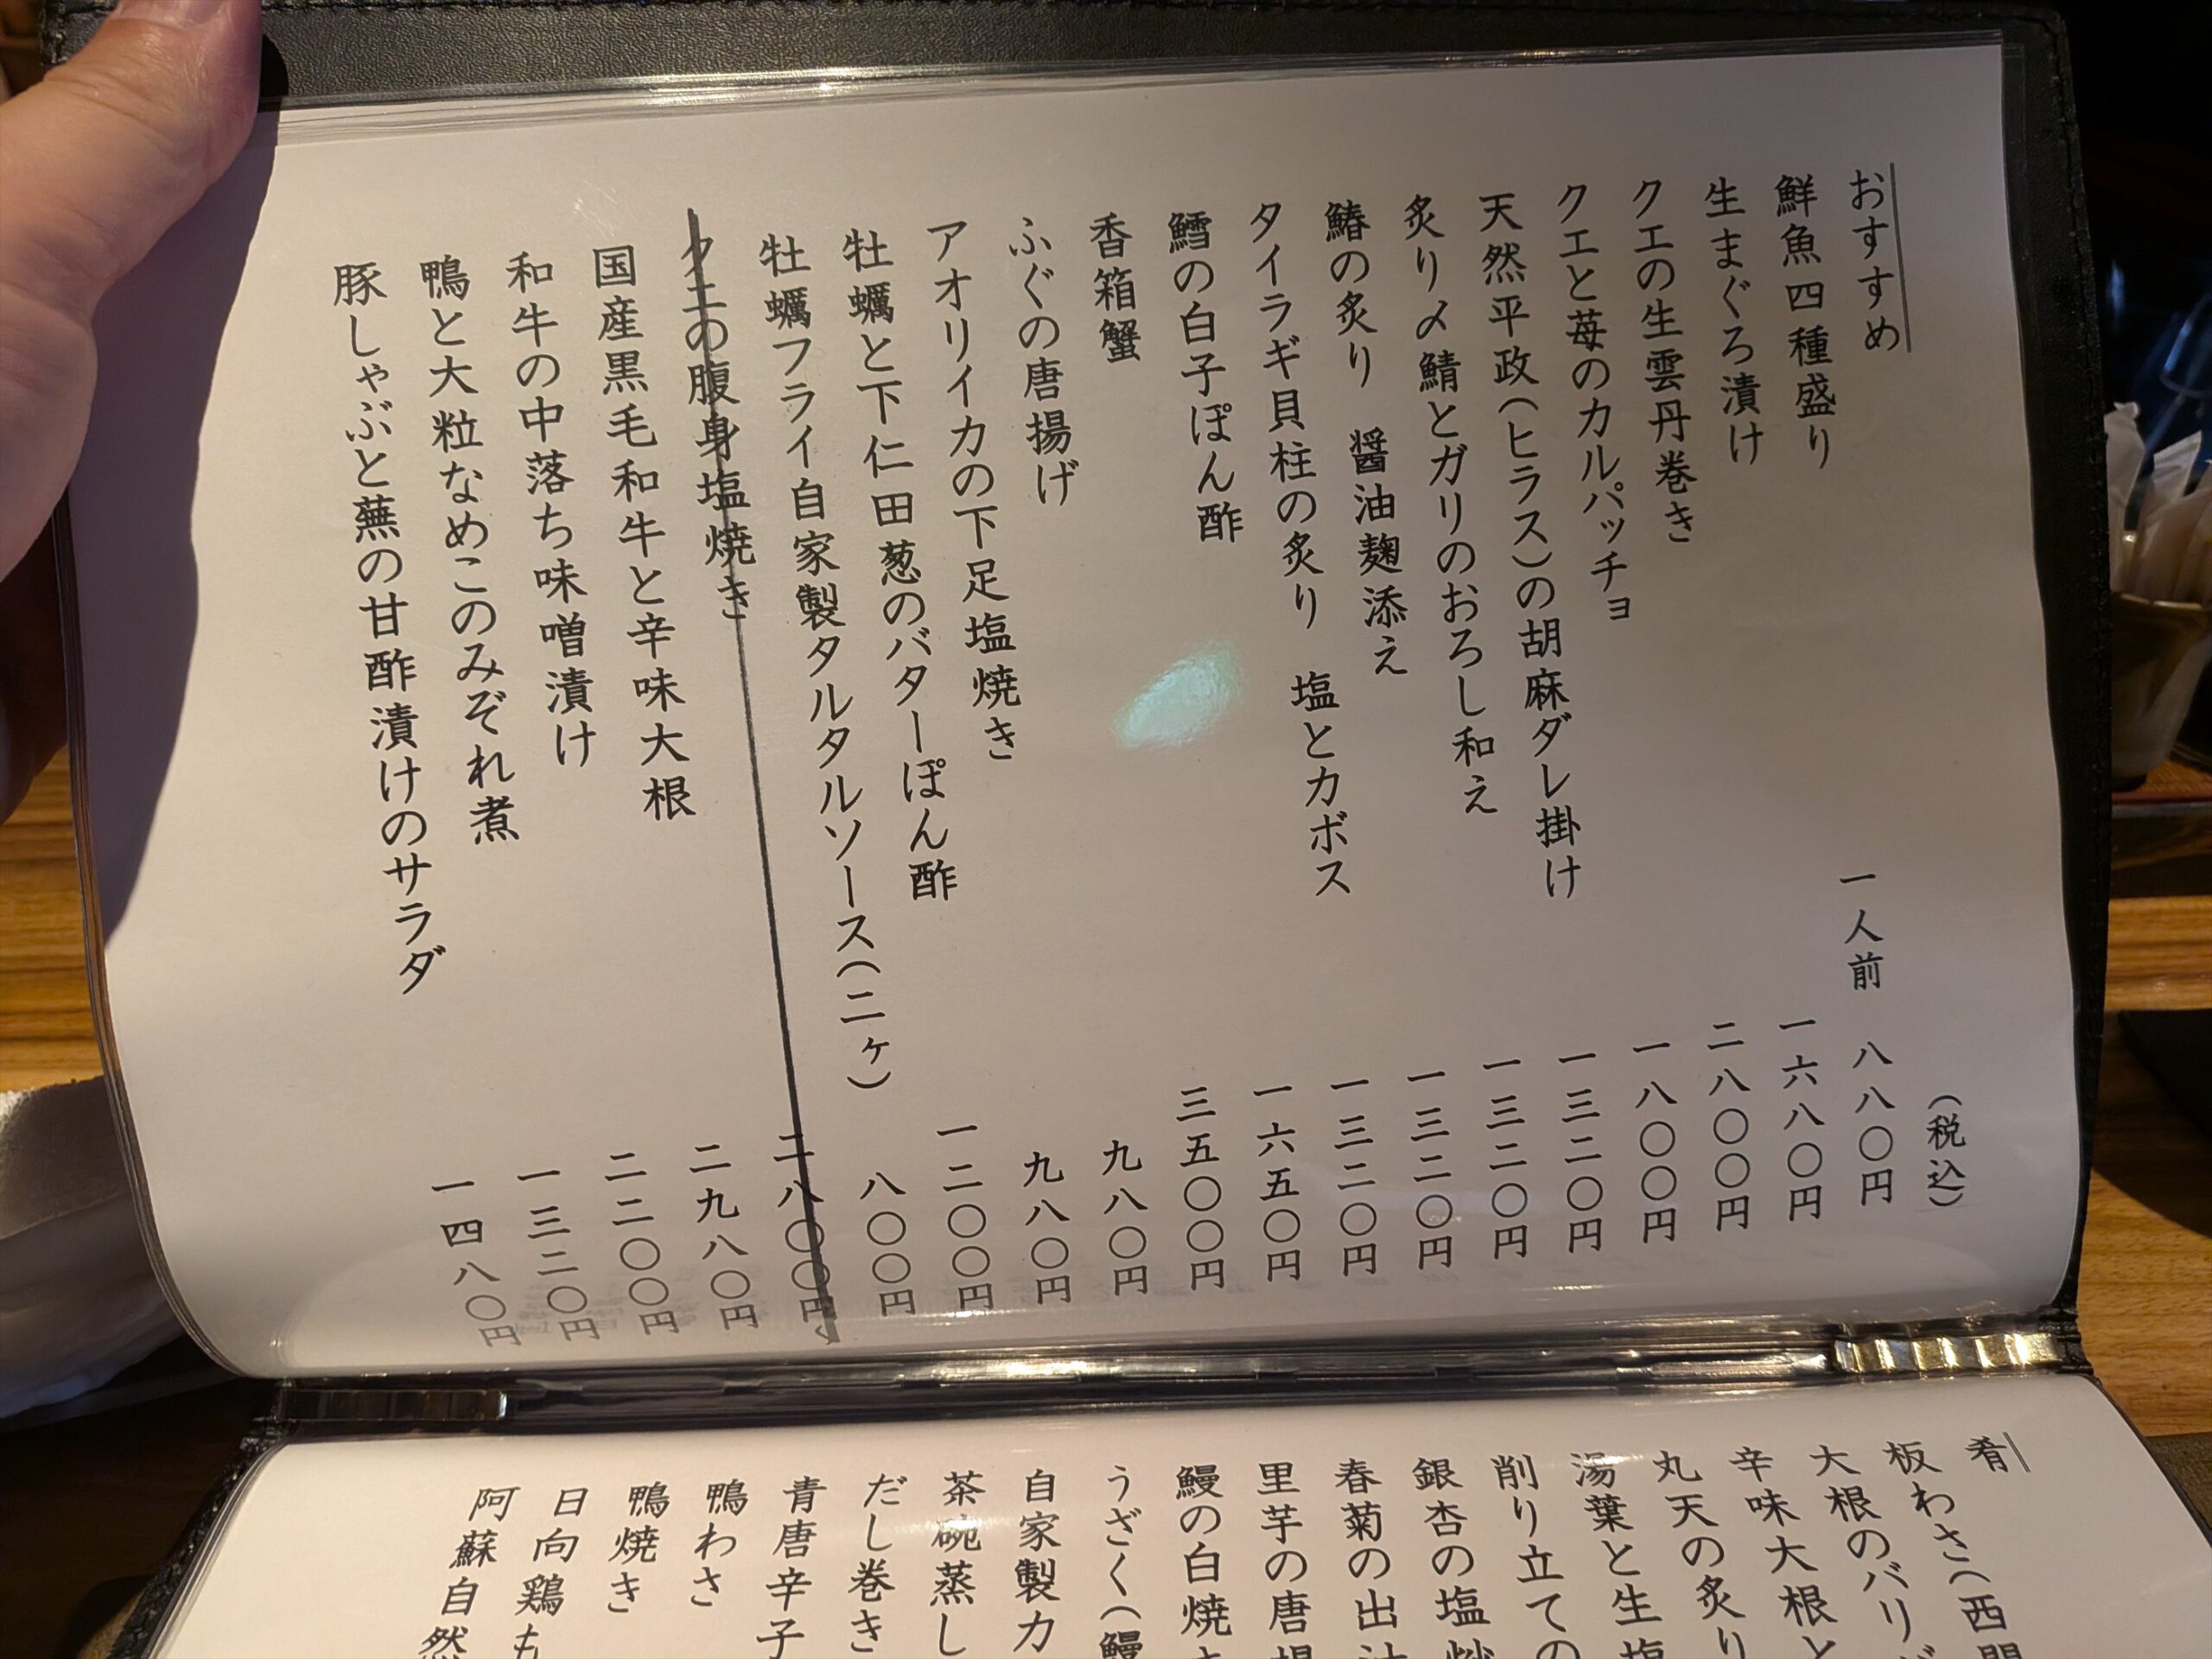 おすすめ
(税込)
鮮魚四種盛り 一人前 八八〇円
生まぐろ漬け 一六八〇円
クエの生雲丹巻き 二八〇〇円
クエと苺のカルパッチョ 一八〇〇円
天然平政(ヒラス)の胡麻ダレ掛け 一三二〇円
炙り〆鯖とガリのおろし和え 一三二〇円
鰆の炙り 醤油麹添え 一三二〇円
タイラギ貝柱の炙り 塩とカボス 一三二〇円
鱈の白子ぽん酢 一六五〇円
香箱蟹 三五〇〇円
ふぐの唐揚げ 九八〇円
アオリイカの下足塩焼き 九八〇円
牡蠣と下仁田葱のバターぽん酢 一二〇〇円
牡蠣フライ自家製タルタルソース(二ヶ) 八〇〇円
クエの腹身塩焼き 二八〇〇円
国産黒毛和牛と辛味大根 二九八〇円
和牛の中落ち味噌漬け 二二〇〇円
鴨と大粒なめこのみぞれ煮 一三二〇円
豚しゃぶと蕪の甘酢漬けのサラダ 一四八〇円
肴
板わさ(西
大根のバリ
辛味大根と
丸天の炙り
湯葉と生塩
削り立ての
銀杏の塩
春菊の出
里芋の唐
鰻の白焼
うざく(鰻
自家製カ
茶碗蒸し
だし巻き
青唐辛子
鴨わさ
鴨焼き
日向鶏も
阿蘇自然